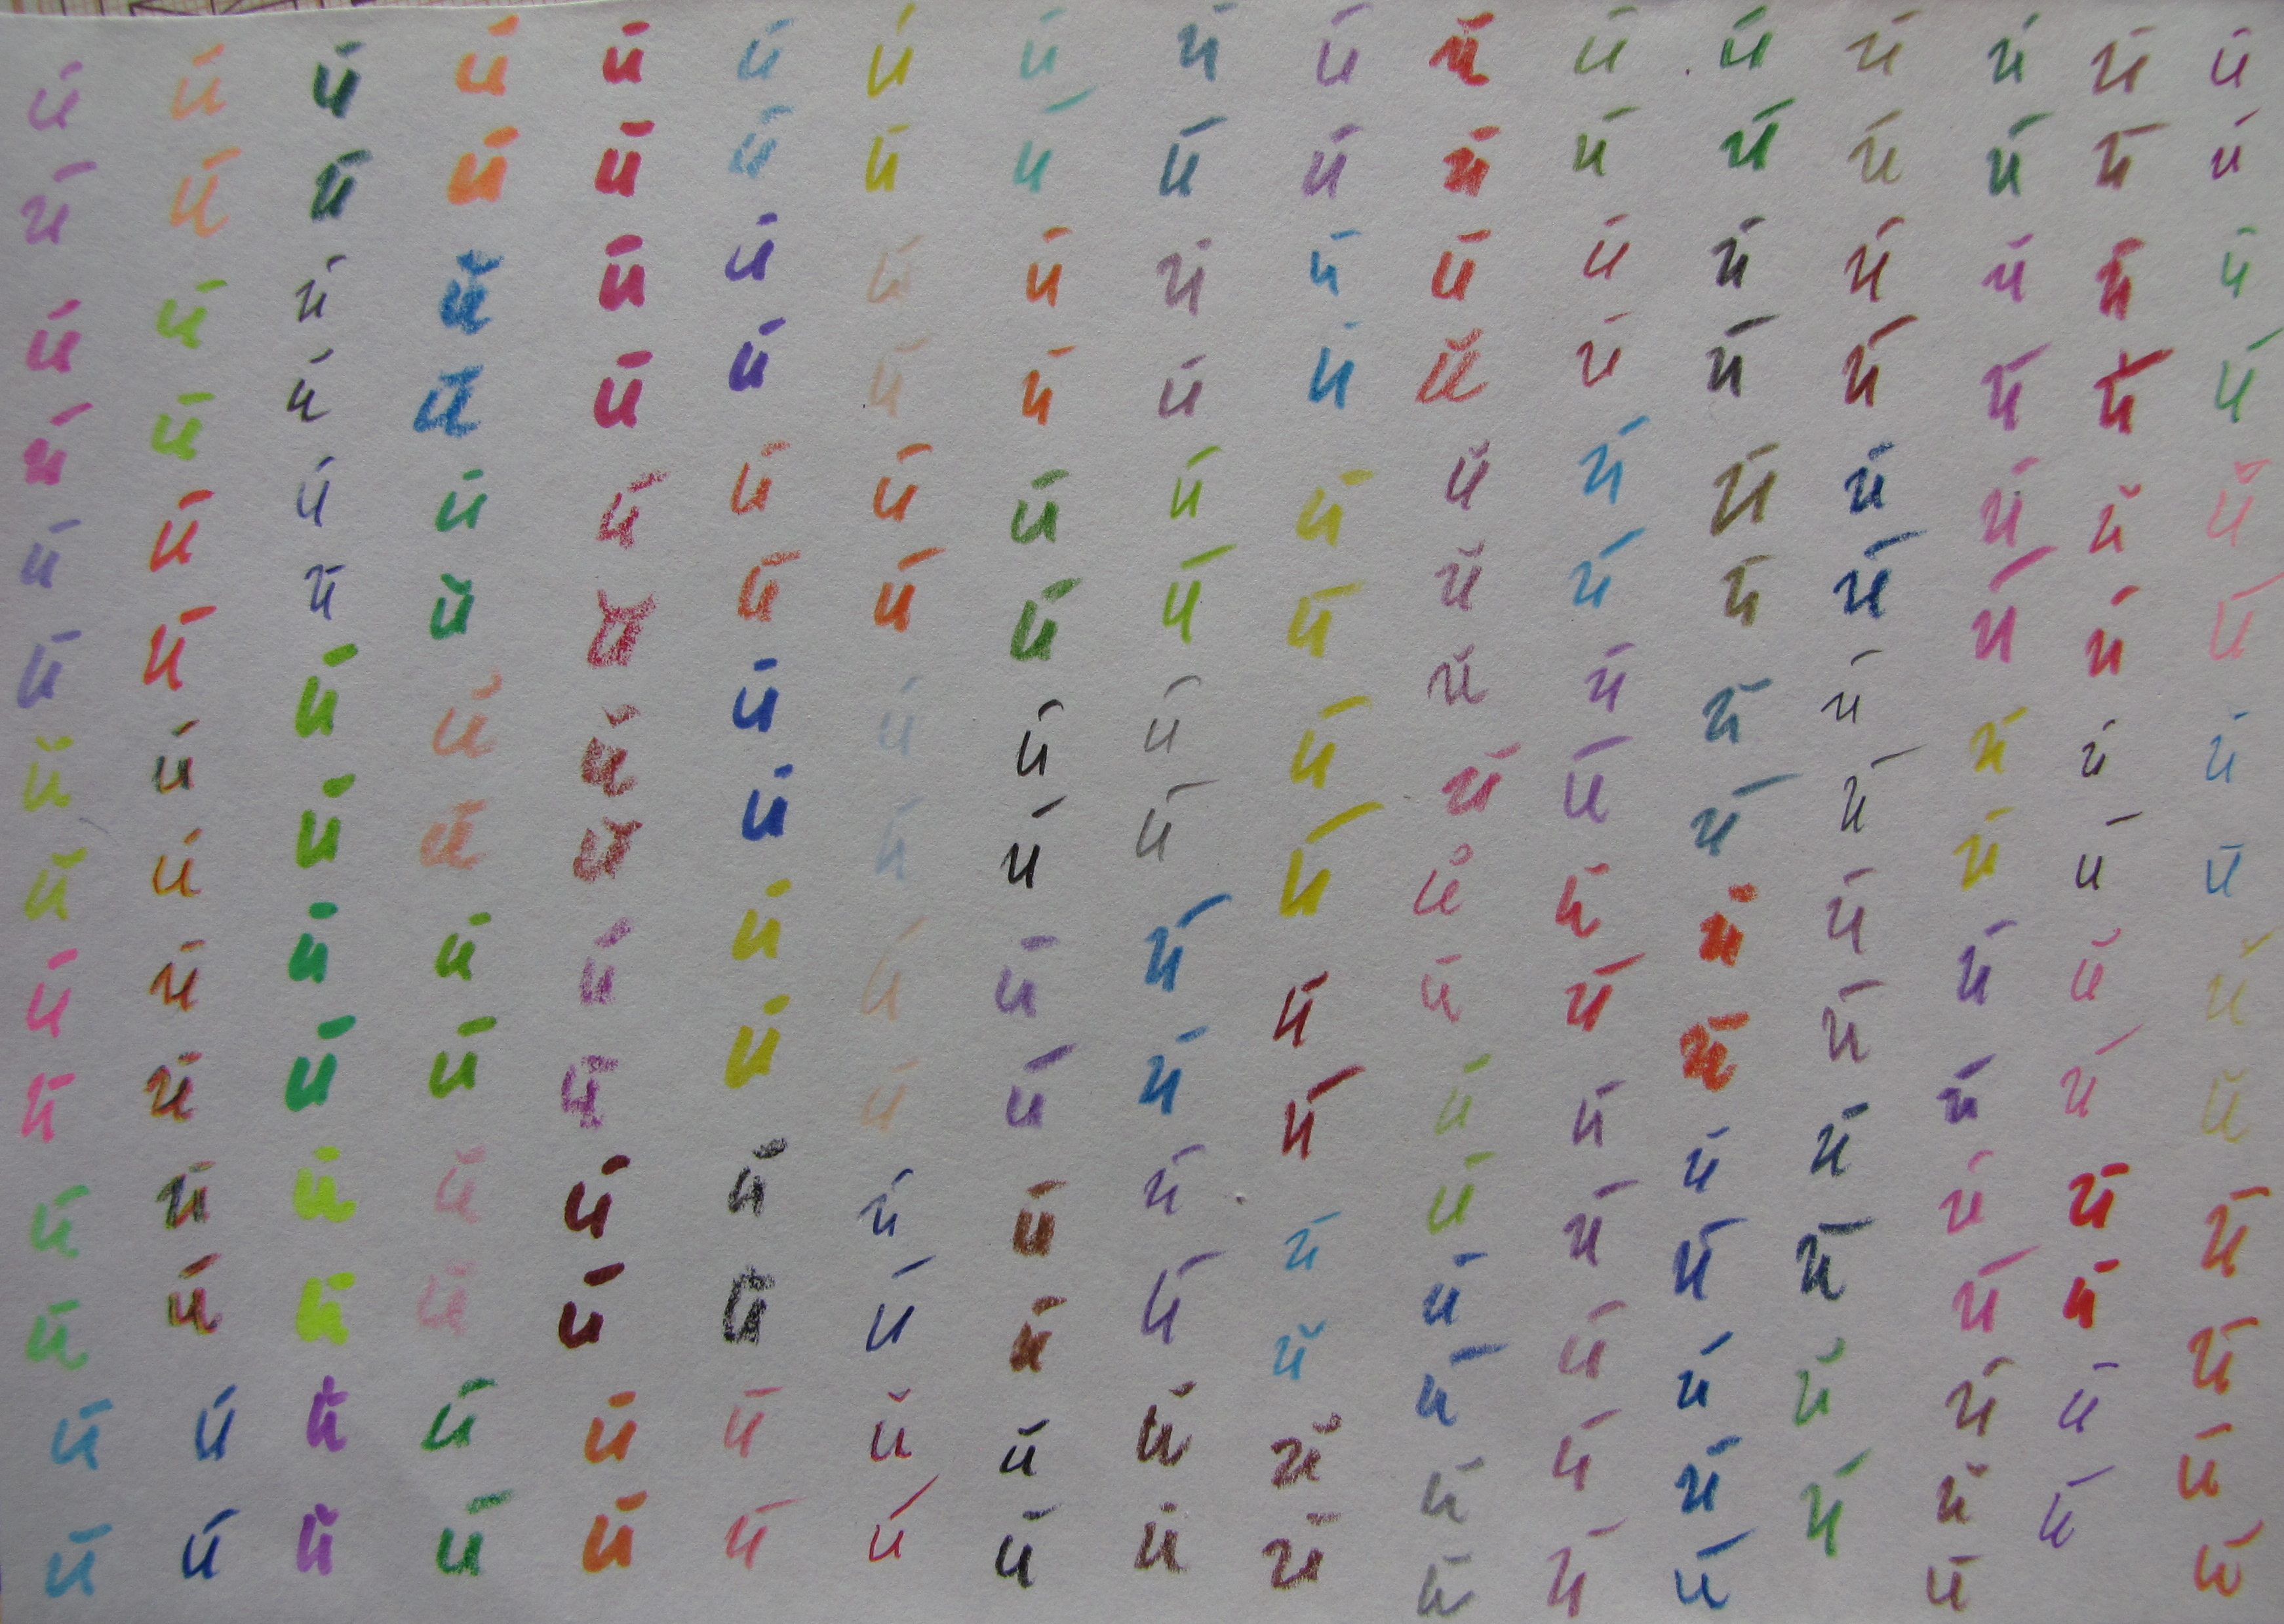 й й й й й й й й й й й й й й й й й
й й й й й й й й й й й й й й й й й
й й й й й й й й й й й й й й й й й
й й й й й й й й й й й й й й й й й
й й й й й й й й й й й й й й й й й
й й й й й й й й й й й й й й й й й
й й й й й й й й й й й й й й й й й
й й й й й й й й й й й й й й й й й
й й й й й й й й й й й й й й й й й
й й й й й й й й й й й й й й й й й
й й й й й й й й й й й й й й й й й
й й й й й й й й й й й й й й й й й
й й й й й й й й й й й й й й й й й
й й й й й й й й й й й й й й й й й
й й й й
й